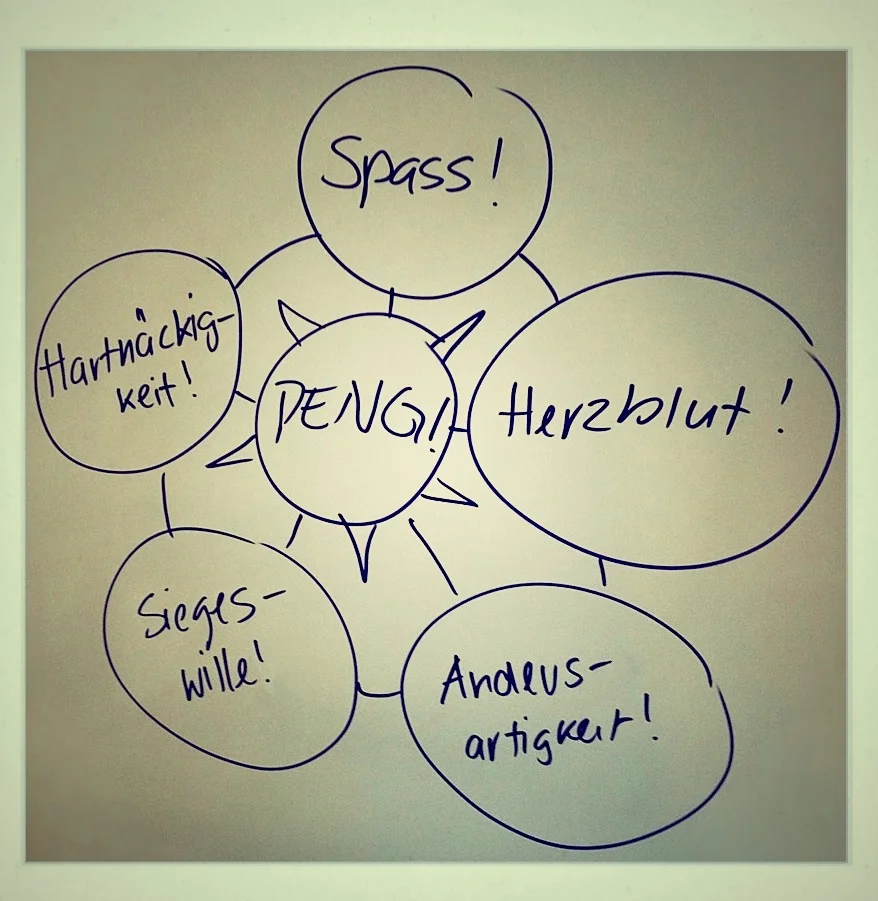 Spass!
Hartnäckig-
keit!
PENG!
Herzblut!
Sieges-
wille!
Anders-
artigkeit!